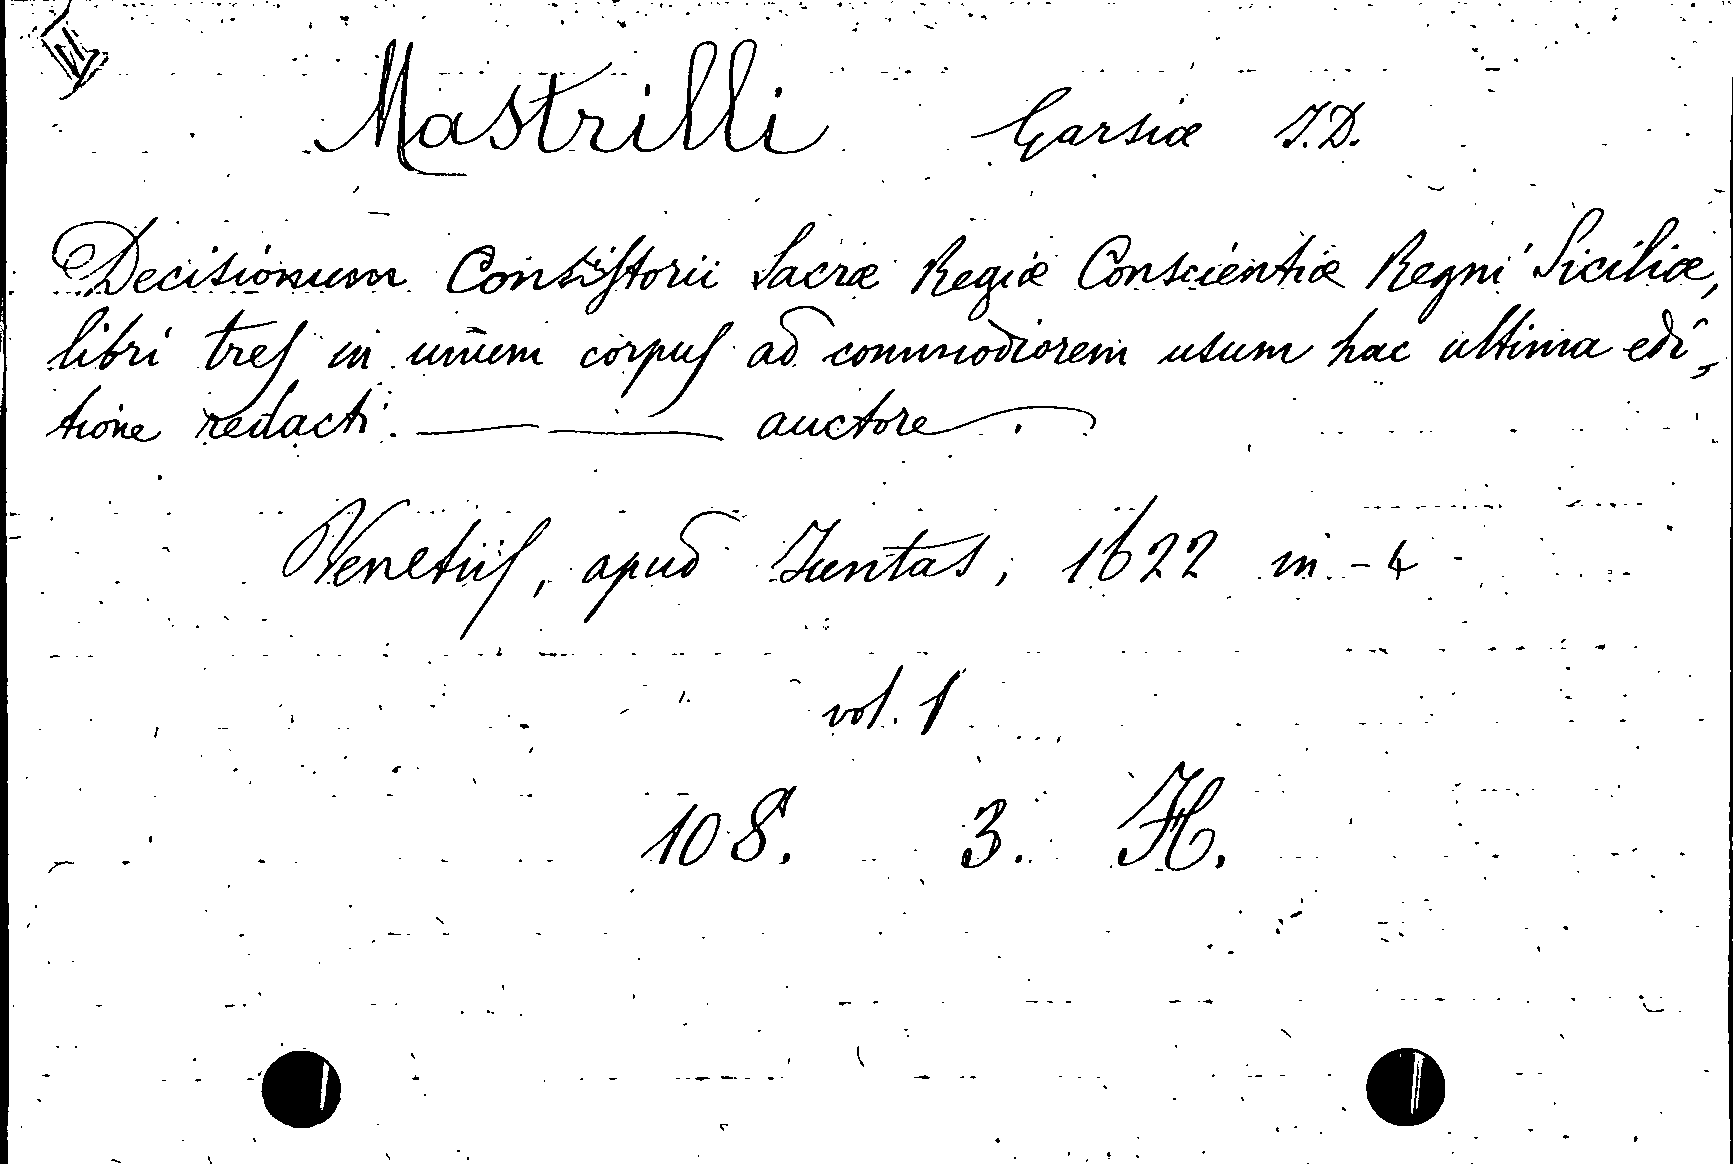 Mastrilli Garsiæ J.D.
Decisionum Consistorii Sacræ Regiæ Conscientiæ Regni Siciliæ,
libri tres in unum corpus ad commodiorem usum hac ultima edi„
tione redacti. —— —— auctore .
Venetiis, apud Juntas, 1622 in-4
vol. 1
108. 3. H.